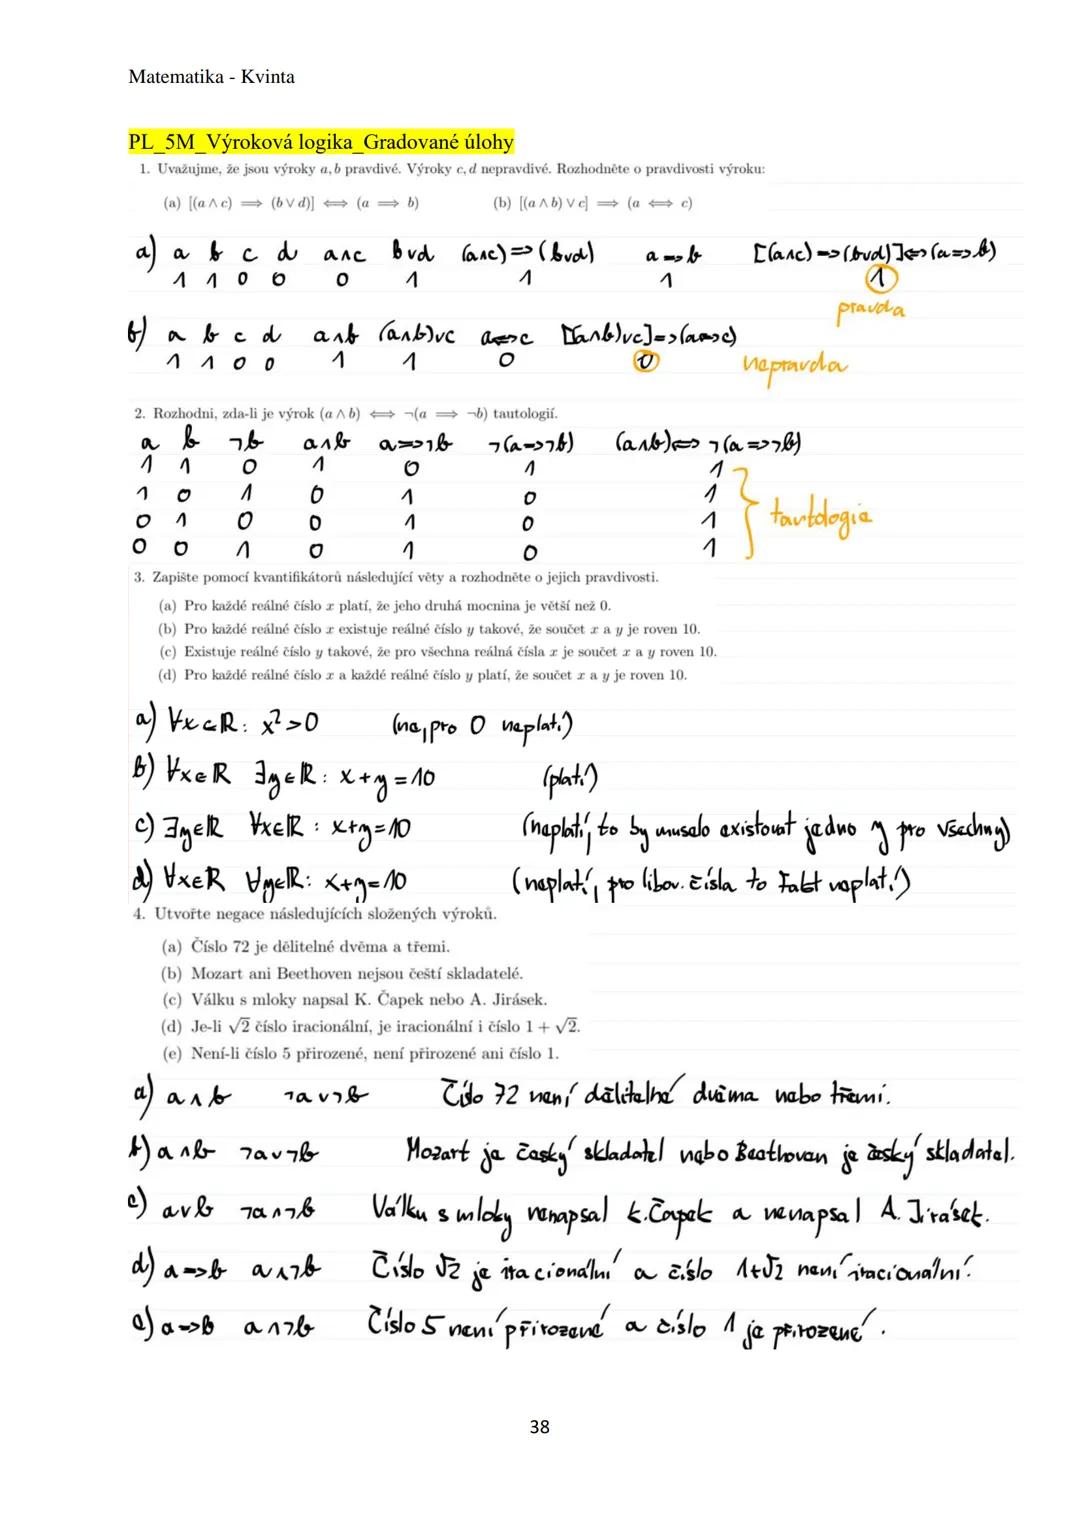 Matematika - Kvinta
PL_5M_Výroková logika_Gradované úlohy
1. Uvažujme, že jsou výroky a, b pravdivé. Výroky c, d nepravdivé. Rozhodněte o pravdivosti výroku:
(a) [(a ∧ c) ⟹ (b ∨ d)] ⟺ (a ⟹ b) (b) [(a ∧ b) ∨ c] ⟹ (a ⟺ c)
a) a b c d a∧c b∨d (a∧c)=>(b∨d) a=>b [(a∧c)=>(b∨d)]<=>(a=>b)
1 1 0 0 0 1 1 1 1
pravda
b) a b c d a∧b (a∧b)∨c a<=>c [(a∧b)∨c]=>(a<=>c)
1 1 0 0 1 1 0 0 nepravda
2. Rozhodni, zda-li je výrok (a ∧ b) ⟺ ¬(a ⟹ ¬b) tautologií.
a b ¬b a∧b a=>¬b ¬(a=>¬b) (a∧b)<=>¬(a=>¬b)
1 1 0 1 0 1 1
1 0 1 0 1 0 1
0 1 0 0 1 0 1 tautologie
0 0 1 0 1 0 1
3. Zapište pomocí kvantifikátorů následující věty a rozhodněte o jejich pravdivosti.
(a) Pro každé reálné číslo x platí, že jeho druhá mocnina je větší než 0.
(b) Pro každé reálné číslo x existuje reálné číslo y takové, že součet x a y je roven 10.
(c) Existuje reálné číslo y takové, že pro všechna reálná čísla x je součet x a y roven 10.
(d) Pro každé reálné číslo x a každé reálné číslo y platí, že součet x a y je roven 10.
a) ∀x∈R: x²>0 (ne, pro 0 neplatí)
b) ∀x∈R ∃y∈R: x+y=10 (platí)
c) ∃y∈R ∀x∈R: x+y=10 (neplatí, to by muselo existovat jedno y pro všechny)
d) ∀x∈R ∀y∈R: x+y=10 (neplatí, pro libov. čísla to fakt neplatí)
4. Utvořte negace následujících složených výroků.
(a) Číslo 72 je dělitelné dvěma a třemi.
(b) Mozart ani Beethoven nejsou čeští skladatelé.
(c) Válku s mloky napsal K. Čapek nebo A. Jirásek.
(d) Je-li √2 číslo iracionální, je iracionální i číslo 1 + √2.
(e) Není-li číslo 5 přirozené, není přirozené ani číslo 1.
a) a∧b ¬a∨¬b Číslo 72 není dělitelné dvěma nebo třemi.
b) a∧b ¬a∨¬b Mozart je český skladatel nebo Beethoven je český skladatel.
c) a∨b ¬a∧¬b Válku s mloky nenapsal K. Čapek a nenapsal A. Jirásek.
d) a=>b a∧¬b Číslo √2 je iracionální a číslo 1+√2 není iracionální.
e) a=>b a∧¬b Číslo 5 není přirozené a číslo 1 je přirozené.
38